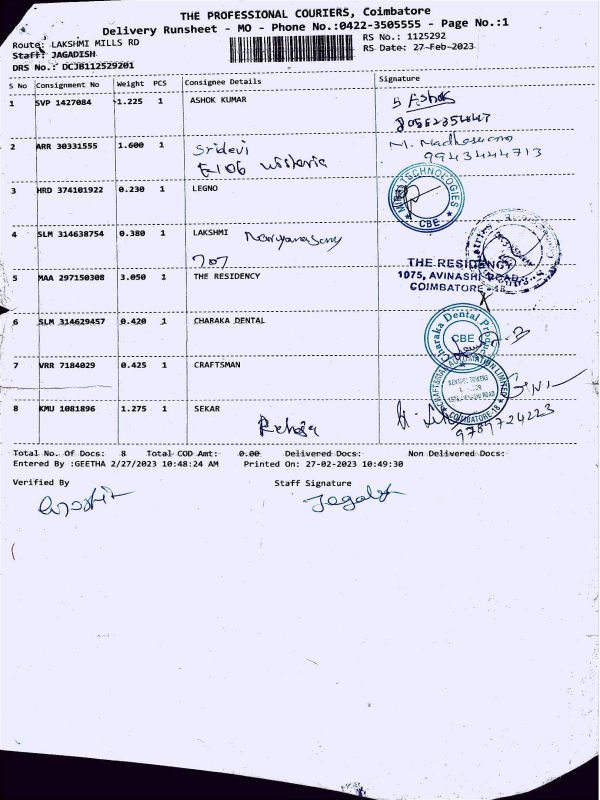 THE PROFESSIONAL COURIERS, Coimbatore
Delivery Runsheet - MO - Phone No.:0422-3505555 - Page No.:1
Route: LAKSHMI MILLS RD
RS No.: 1125292
Staff: JAGADISH
RS Date: 27-Feb-2023
DRS No.: DCJB112529201
S No Consignment No Weight PCS Consignee Details Signature
1 SVP 1427084 1.225 1 ASHOK KUMAR
2 ARR 30331555 1.600 1 Sridevi
E106 Wisteria
9943444713
3 HRD 374101922 0.230 1 LEGNO
TECHNOLOGIES
CBE
4 SLM 314638754 0.380 1 LAKSHMI
707
5 MAA 297150308 3.050 1 THE RESIDENCY
THE RESIDENCY
1075, AVINASHI ROAD
COIMBATORE - 18
6 SLM 314629457 0.420 1 CHARAKA DENTAL
Charaka Dental
CBE
7 VRR 7184029 0.425 1 CRAFTSMAN
CRAFTSMAN AUTOMATION LIMITED
COIMBATORE-18
8 KMU 1081896 1.275 1 SEKAR
9789724223
Total No. Of Docs: 8 Total COD Amt: 0.00 Delivered Docs: Non Delivered Docs:
Entered By :GEETHA 2/27/2023 10:48:24 AM Printed On: 27-02-2023 10:49:30
Verified By Staff Signature